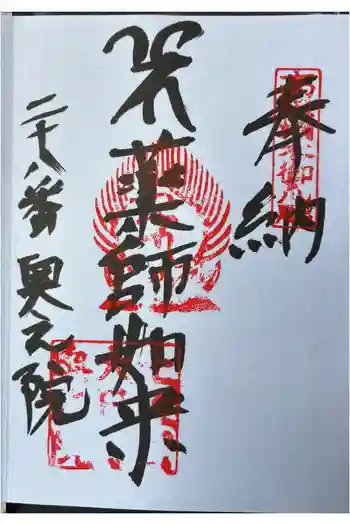 奉納
薬師如来
二十八番奥之院